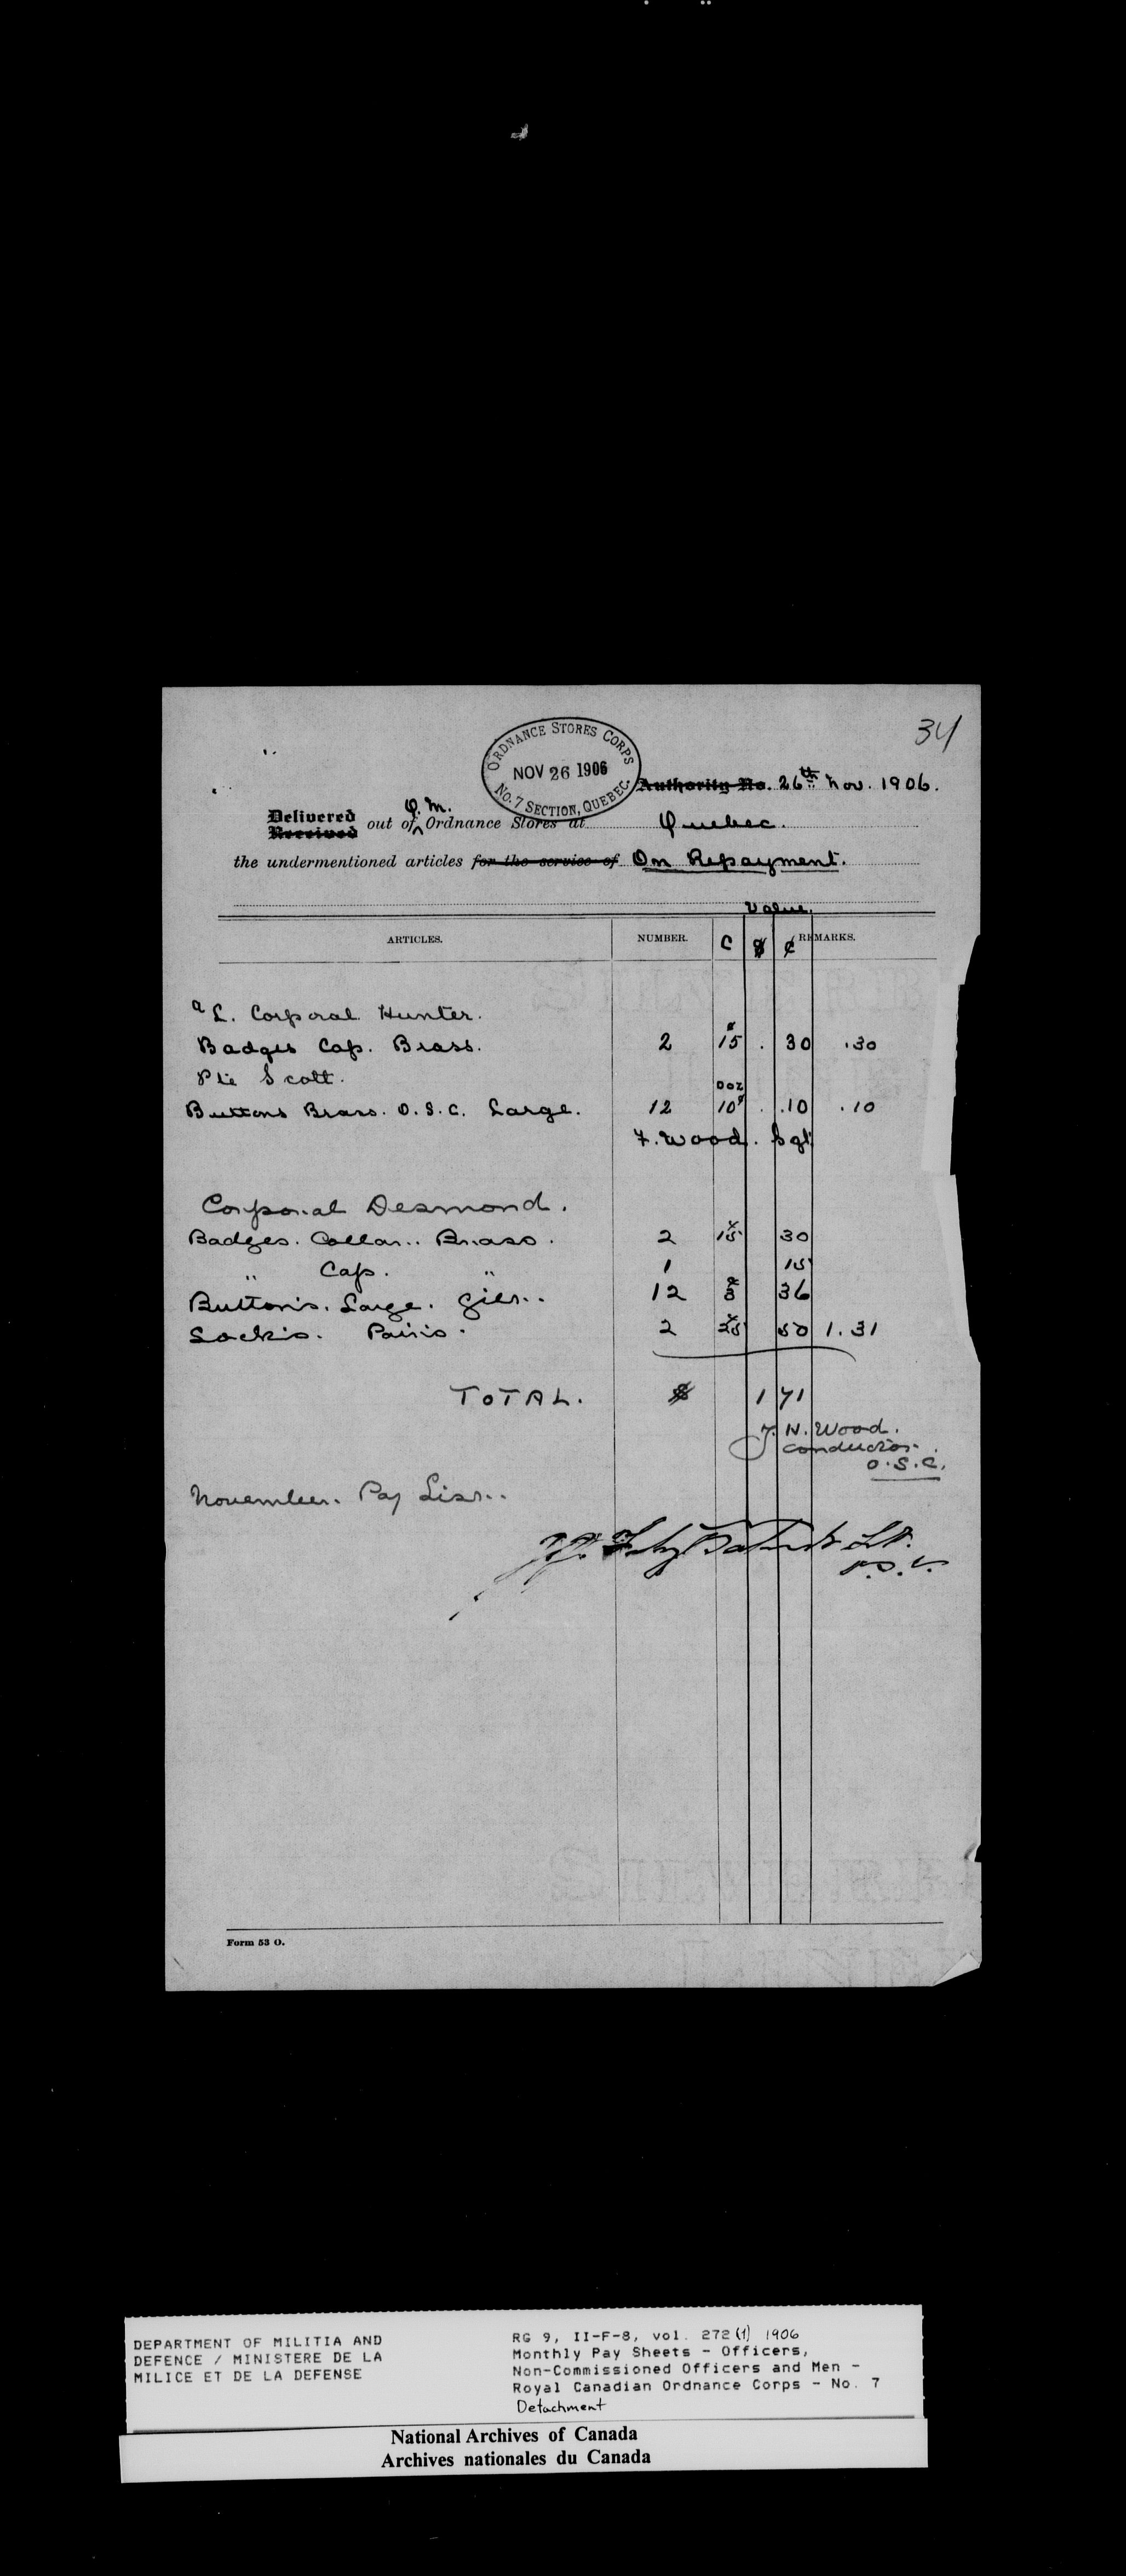 34
ORDNANCE STORES CORPS
NOV 26 1906
No. 7 SECTION, QUEBEC.
Authority No. 26th Nov. 1906.
Q.M.
Delivered
Received out of Ordnance Stores at Quebec.
the undermentioned articles for the service of On Repayment.
Value
ARTICLES. NUMBER. C $ ¢ REMARKS.
a/L. Corporal Hunter.
Badges Cap. Brass. 2 15 . 30 .30
Pte Scott.
Doz
Buttons Brass. O.S.C. Large. 12 10 . .10 .10
F. Wood. Sgt
Corporal Desmond.
Badges. Collar.. Brass. 2 15 30
" Cap. " 1 15
Buttons. Large. Gilt.. 12 3 36
Socks. Pairs. 2 25 50 1.31
TOTAL. $ 1 71
J. N. Wood.
Conductor.
O.S.C.
November. Pay List..
Lt.
Form 53 O.
DEPARTMENT OF MILITIA AND
DEFENCE / MINISTERE DE LA
MILICE ET DE LA DEFENSE
RG 9, II-F-8, vol. 272 (1) 1906
Monthly Pay Sheets - Officers,
Non-Commissioned Officers and Men -
Royal Canadian Ordnance Corps - No. 7
Detachment
National Archives of Canada
Archives nationales du Canada